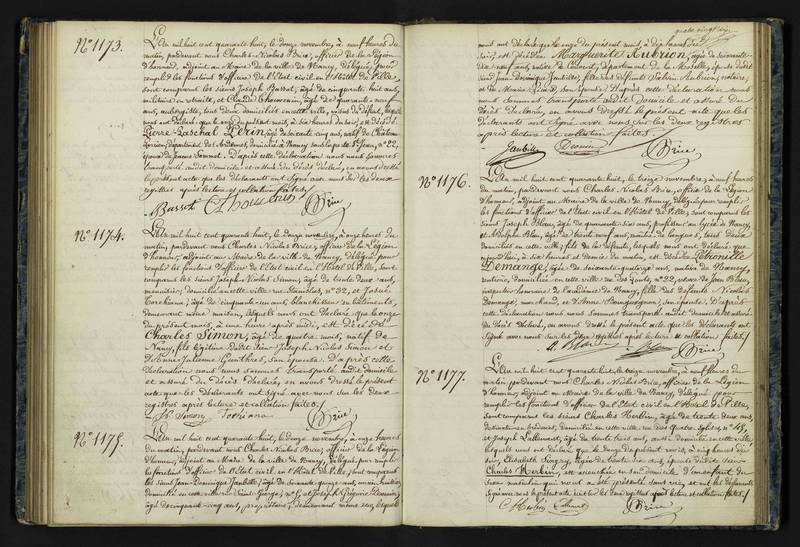 N° 1173.
L'an mil huit cent quarante huit, le douze novembre, à neuf heures du
matin, pardevant nous Charles Nicolas Brice, officier de la Légion
d'honneur, adjoint au Maire de la ville de Nancy, délégué pour
remplir les fonctions d'officier de l'Etat civil en l'Hôtel de Ville,
sont comparus les sieurs Joseph Bassot, âgé de cinquante huit ans,
militaire en retraite, et Claude Chouvenin, âgé de quarante neuf
ans, aubergiste, tous deux domiciliés en cette ville, voisins du défunt, lesquels
nous ont déclaré que le onze du présent mois, à six heures du soir, est décédé
Pierre Paschal Perin, âgé de soixante cinq ans, natif de Château
département des Ardennes, domicilié à Nancy sous la porte St Jean, n° 22,
époux de Jeanne Sommet. D'après cette déclaration nous nous sommes
transporté audit domicile et assuré du décès déclaré, en avons dressé
le présent acte que les déclarants ont signé avec nous sur les deux
registres après lecture et collation faites.
Bassot Chouvenin Brice
N° 1174.
L'an mil huit cent quarante huit, le douze novembre, à onze heures du
matin, pardevant nous Charles Nicolas Brice, officier de la Légion
d'honneur, adjoint au Maire de la ville de Nancy, délégué pour
remplir les fonctions d'officier de l'Etat civil en l'Hôtel de Ville, sont
comparus les sieurs Joseph Nicolas Simon, âgé de trente deux ans,
menuisier, domicilié en cette ville rue Stanislas, n° 32, et Joseph
âgé de cinquante un ans, blanchisseur en bâtiments,
demeurant même maison, lesquels nous ont déclaré que le onze
du présent mois, à une heure après midi, est décédé
Charles Simon, âgé de quatre mois, natif de
Nancy, fils légitime dudit sieur Joseph Nicolas Simon et
d'Anne Julienne son épouse. D'après cette
déclaration nous nous sommes transporté audit domicile
et assuré du décès déclaré, en avons dressé le présent
acte que les déclarants ont signé avec nous sur les deux
registres après lecture et collation faites.
Simon Brice
N° 1175.
L'an mil huit cent quarante huit, le douze novembre, à onze heures
du matin, pardevant nous Charles Nicolas Brice, officier de la Légion
d'honneur, adjoint au Maire de la ville de Nancy, délégué par remplir
les fonctions d'officier de l'Etat civil en l'Hôtel de Ville, sont comparus
les sieurs Jean Dominique Jaubille, âgé de soixante quinze ans,
domicilié en cette ville rue St Georges, n° 5, et Joseph Grégoire
âgé de cinquante cinq ans, propriétaire, demeurant même rue, lesquels
nous ont déclaré que le onze du présent mois, à dix heures du
soir, est décédée Marguerite Aubrion, âgée de soixante
dix neuf ans, native de département de la Moselle, épouse dudit
sieur Jean Dominique Jaubille, fille des défunts Aubrion, notaire,
et de Marie son épouse. D'après cette déclaration nous
nous sommes transporté audit domicile et assuré du
décès déclaré, en avons dressé le présent acte que les
déclarants ont signé avec nous sur les deux registres
après lecture et collation faites.
Jaubille Brice
N° 1176.
L'an mil huit cent quarante huit, le treize novembre, à neuf heures
du matin, pardevant nous Charles Nicolas Brice, officier de la Légion
d'honneur, adjoint au Maire de la ville de Nancy, délégué pour remplir
les fonctions d'officier de l'Etat civil en l'Hôtel de Ville, sont comparus les
sieurs Joseph Blau, âgé de quarante six ans, professeur au lycée de Nancy,
et Adolphe Blau, âgé de trente neuf ans, maître de langues, tous deux
domiciliés en cette ville, fils de la défunte, lesquels nous ont déclaré que
aujourd'hui, à six heures et demie du matin, est décédée Pétronille
Demange, âgée de soixante quatorze ans, native de Nancy,
rentière, domiciliée en cette ville rue n° 22, veuve de Jean Blau,
inspecteur honoraire de l'académie de Nancy, fille des défunts Nicolas
Demange, marchand, et d'Anne Bourguignon, son épouse. D'après
cette déclaration nous nous sommes transporté audit domicile et assuré
du décès déclaré, en avons dressé le présent acte que les déclarants ont
signé avec nous sur les deux registres après lecture et collation faites.
A. Blau Brice
N° 1177.
L'an mil huit cent quarante huit, le treize novembre, à neuf heures du
matin, pardevant nous Charles Nicolas Brice, officier de la Légion
d'honneur, adjoint au Maire de la ville de Nancy, délégué pour
remplir les fonctions d'officier de l'Etat civil en l'Hôtel de Ville,
sont comparus les sieurs Charles Herbin, âgé de trente deux ans,
domicilié en cette ville rue des quatre églises, n° 49,
et Joseph Lallement, âgé de trente huit ans, aussi domicilié en cette ville,
lesquels nous ont déclaré que le douze du présent mois, à cinq heures du
soir, Elisabeth âgée de trente six ans, épouse dudit sieur
Charles Herbin, est accouchée en son domicile d'un enfant du
sexe masculin qui nous a été présenté sans vie, et ont les déclarants
signé avec nous le présent acte sur les deux registres après lecture et collation faites.
Herbin Brice